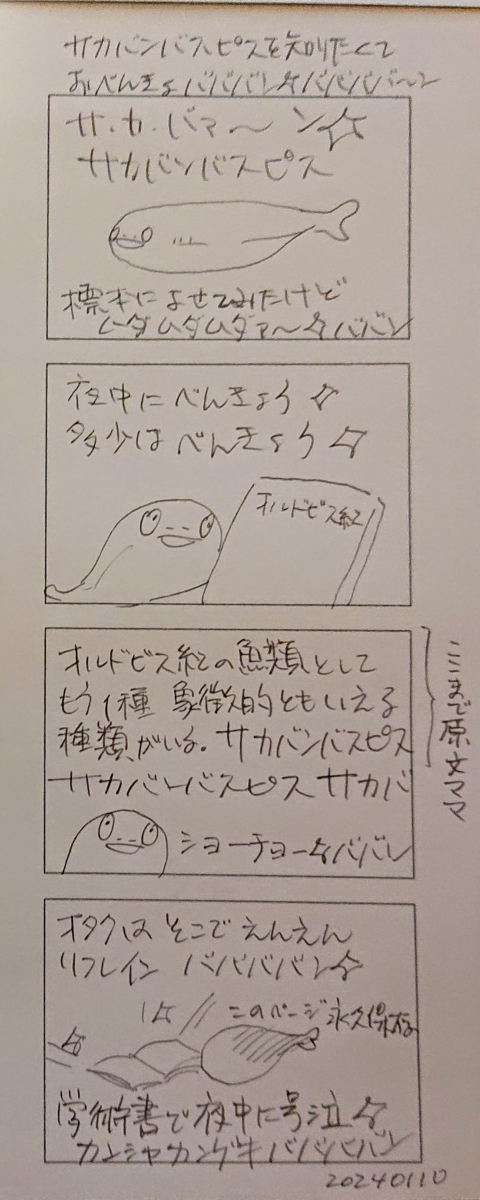 サカバンバスピスを知りたくて
おべんきょババババン☆ババババ〜ン
サ・カ・バァ〜ン☆
サカバンバスピス
標本によせてみたけど
ムーダムダムダァ〜☆ババン
夜中にべんきょう☆
多少はべんきょう☆
オルドビス紀
オルドビス紀の魚類として
もう1種 象徴的ともいえる
種類がいる。サカバンバスピス
サカバンバスピス サカバ
ここまで原文ママ
ショーチョー☆ババン
オタクはそこでえんえん
リフレイン ババババン☆
このページ永久保存
学術書で夜中に号泣☆
カンシャカンゲキババババン
20240110